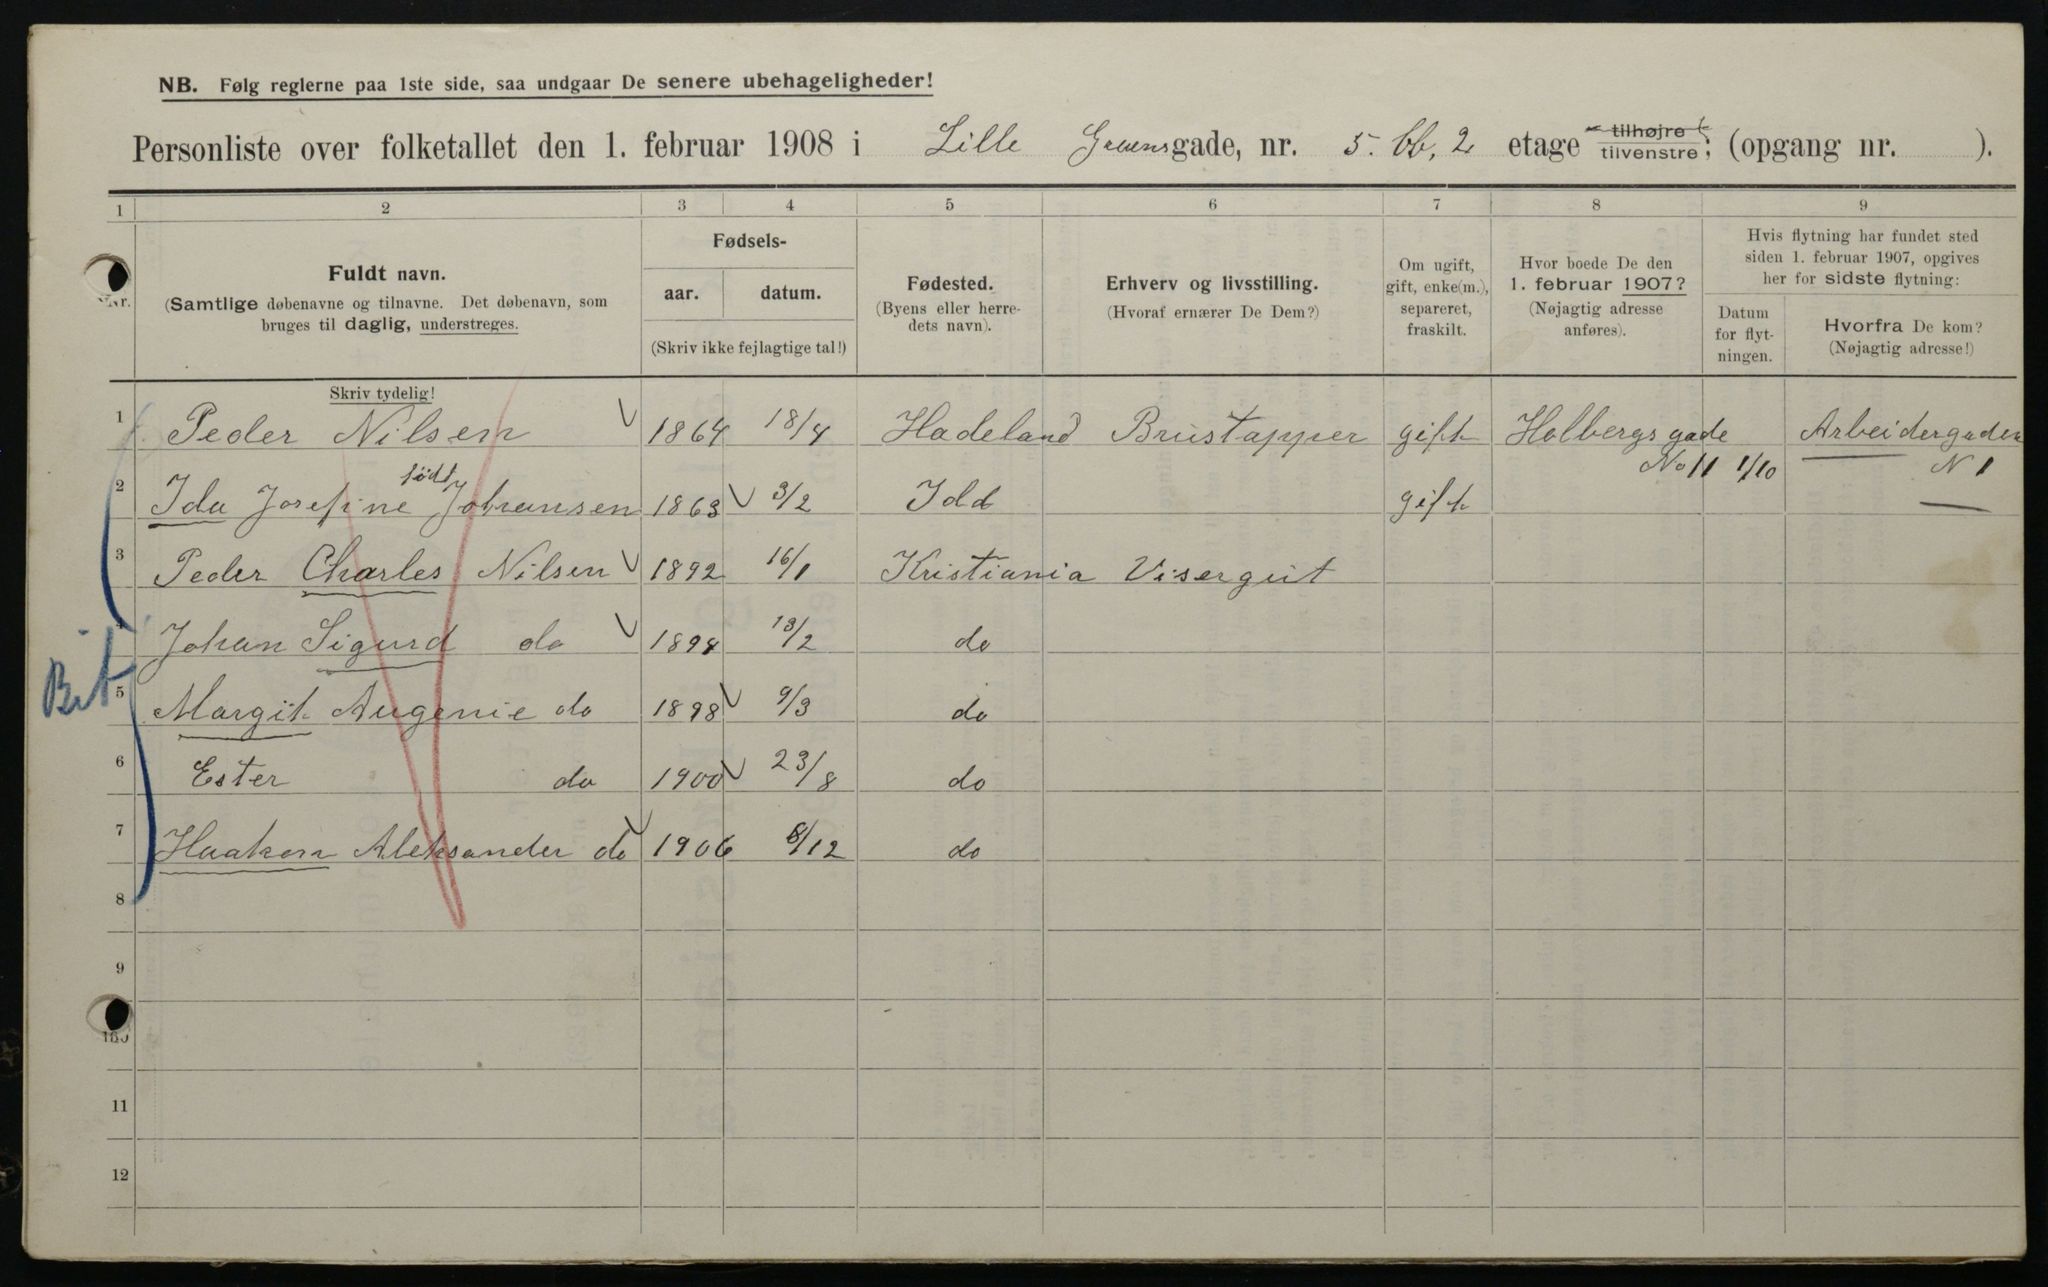 NB. Følg reglerne paa 1ste side, saa undgaar De senere ubehageligheder!
Personliste over folketallet den 1. februar 1908 i Lille Grænsgade, nr. 5. bb, 2 etage tilhøjre tilvenstre; (opgang nr. ).
1 2 3 4 5 6 7 8 9
Nr.
Fuldt navn.
(Samtlige døbenavne og tilnavne. Det døbenavn, som
bruges til daglig, understreges.
Fødsels-
aar. datum.
(Skriv ikke fejlagtige tal!)
Fødested.
(Byens eller herre-
dets navn).
Erhverv og livsstilling.
(Hvoraf ernærer De Dem?)
Om ugift,
gift, enke(m.),
separeret,
fraskilt.
Hvor boede De den
1. februar 1907?
(Nøjagtig adresse
anføres).
Hvis flytning har fundet sted
siden 1. februar 1907, opgives
her for sidste flytning:
Datum
for flyt-
ningen.
Hvorfra De kom?
(Nøjagtig adresse!)
Skriv tydelig!
1 Peder Nilsen 1864 18/4 Hadeland Brustapper gift Holbergsgade Arbeidergaden
No 11 1/10 N 1
født
2 Ida Josefine Johansen 1863 3/2 Idd gift
3 Peder Charles Nilsen 1892 16/1 Kristiania Visergut
4 Johan Sigurd do 1894 13/2 do
Bit
5 Margit Augenie do 1898 9/3 do
6 Ester do 1900 23/8 do
7 Haakon Aleksander do 1906 8/12 do
8
9
10
11
12